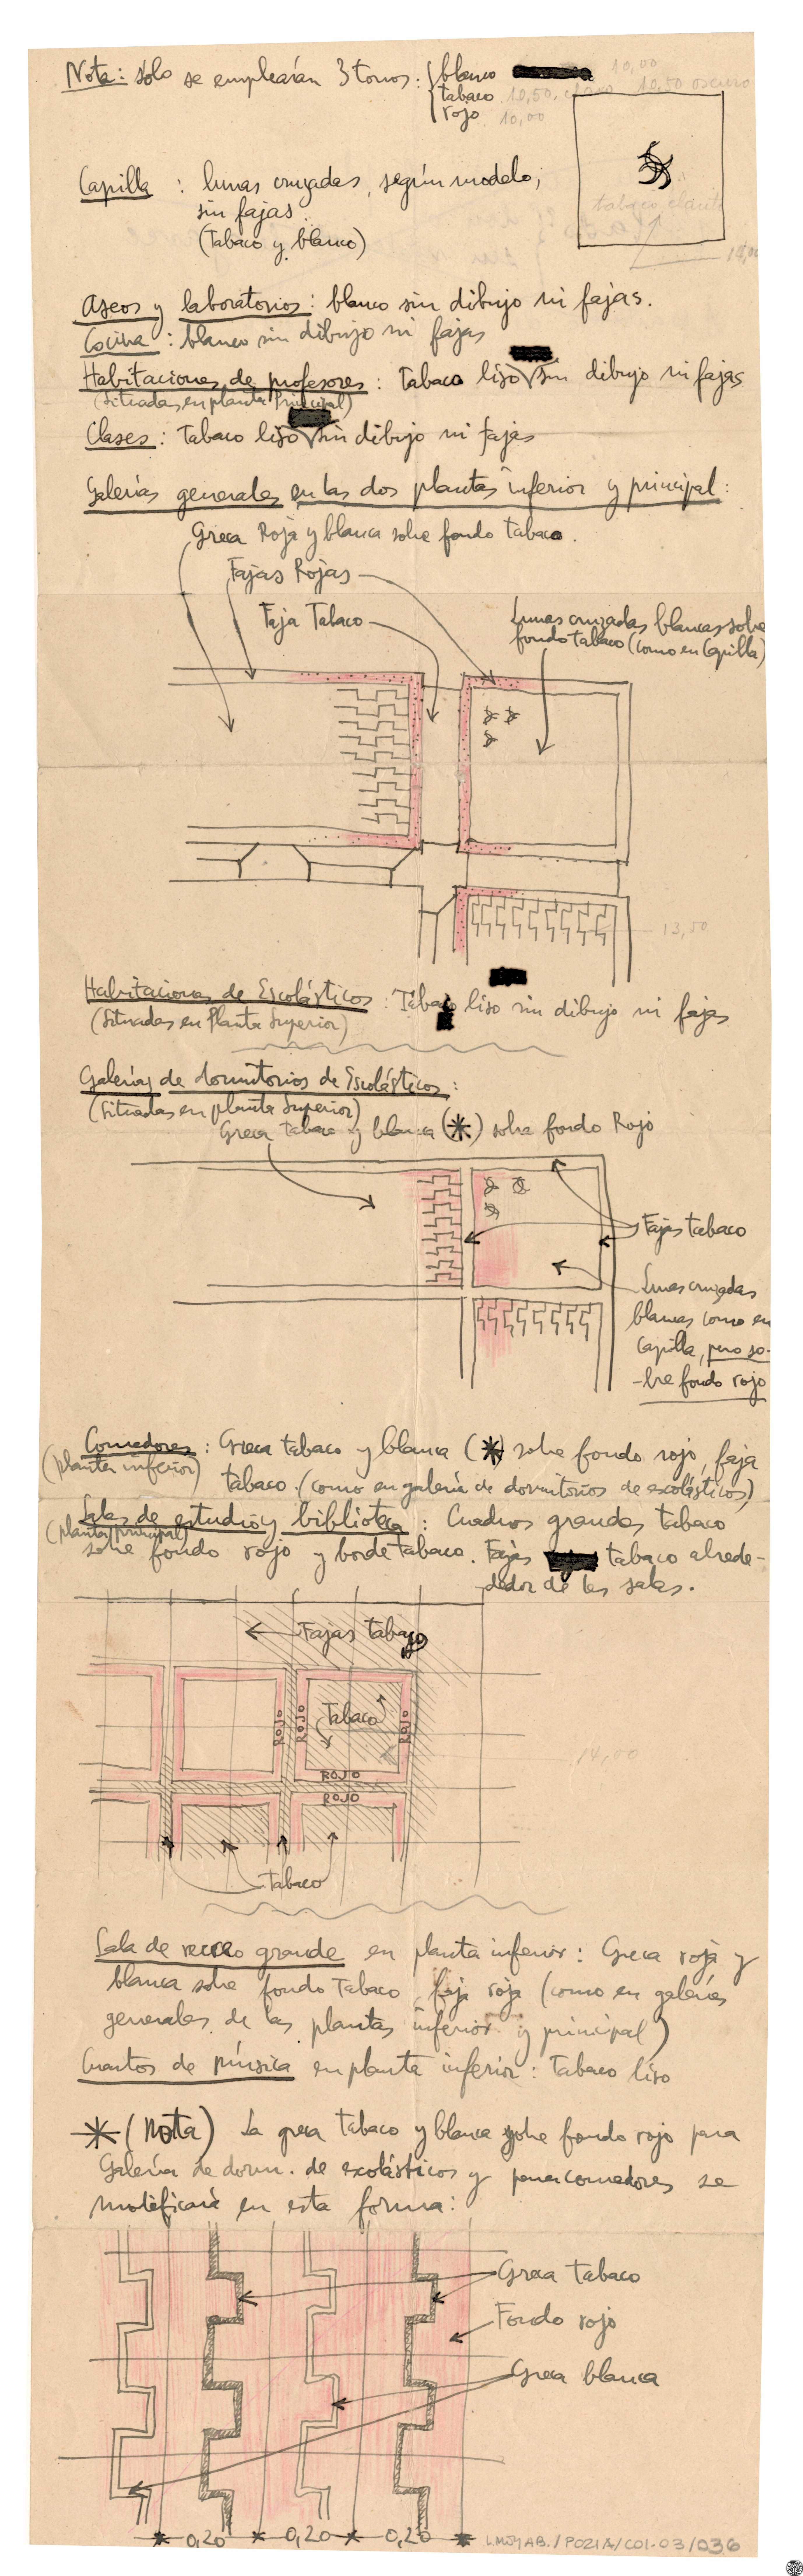 Nota: sólo se emplearán 3 tonos: blanco 10,00
tabaco 10,50. claro 10,50 oscuro
rojo 10,00
Capilla : lunas cruzadas, según modelo,
sin fajas.
(Tabaco y blanco)
tabaco claro
Aseos y laboratorios: blanco sin dibujo ni fajas.
Cocina : blanco sin dibujo ni fajas
Habitaciones de profesores : Tabaco liso sin dibujo ni fajas
(Situadas en planta Principal)
Clases : Tabaco liso sin dibujo ni fajas
Galerías generales en las dos plantas inferior y principal:
Greca Roja y blanca sobre fondo tabaco.
Fajas Rojas
Faja Tabaco
Lunas cruzadas blancas sobre
fondo tabaco (como en Capilla)
13,50
Habitaciones de Escolásticos : Tabaco liso sin dibujo ni fajas
(Situadas en Planta Superior)
Galerías de dormitorios de Escolásticos:
(Situadas en planta Superior)
Greca tabaco y blanca (*) sobre fondo Rojo
Fajas tabaco
Lunas cruzadas
blancas como en
Capilla, pero so-
-bre fondo rojo
Comedores : Greca tabaco y blanca (*) sobre fondo rojo, faja
(planta inferior)
tabaco. (como en galería de dormitorios de escolásticos)
Salas de estudio y biblioteca : Cuadros grandes tabaco
(planta principal)
sobre fondo rojo y borde tabaco. Fajas tabaco alrede-
-dedor de las salas.
Fajas tabaco
ROJO
ROJO
Tabaco
ROJO
ROJO
ROJO
14,00
Tabaco
Sala de recreo grande en planta inferior: Greca roja y
blanca sobre fondo Tabaco, faja roja (como en galerías
generales de las plantas inferior y principal)
Cuartos de música en planta inferior: Tabaco liso
* (Nota) La greca tabaco y blanca sobre fondo rojo para
Galería de dorm. de escolásticos y para comedores se
modificará en esta forma:
Greca tabaco
Fondo rojo
Greca blanca
0,20 0,20 0,20
L.MOYAB./P021A/C01-03/036